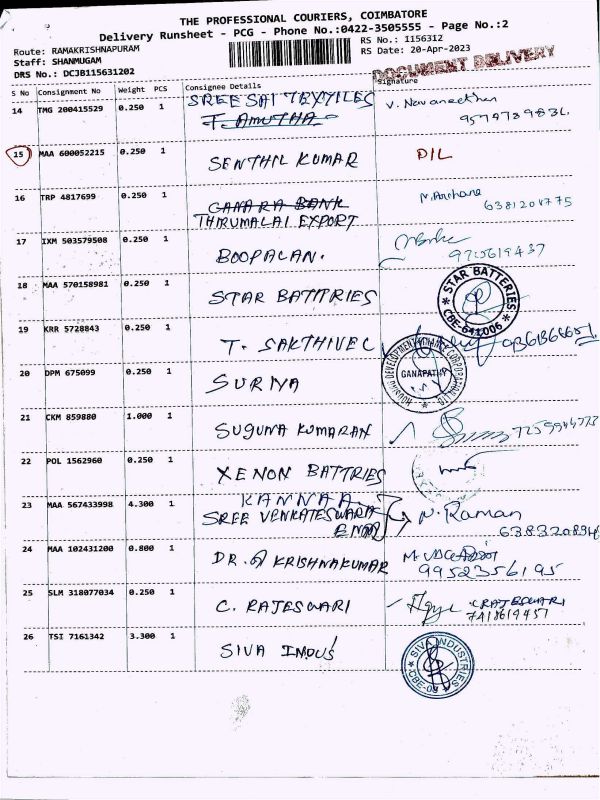 THE PROFESSIONAL COURIERS, COIMBATORE
Delivery Runsheet - PCG - Phone No.:0422-3505555 - Page No.:2
Route: RAMAKRISHNAPURAM
Staff: SHANMUGAM
DRS No.: DCJ3B115631202
RS No.: I156312
RS Date: 20-Apr-2023
DOCUMENT DELIVERY
S No Consignment No Weight PCS Consignee Details Signature
14 TMG 200415529 0.250 1 SREE SAI TEXTILES
T. AMUTHA
V. Navaneethan
15 MAA 600052215 0.250 1 SENTHIL KUMAR DIL
16 TRP 4817699 0.250 1 CANARA BANK
THIRUMALAI EXPORT
17 IXM 503579508 0.250 1 BOOPALAN.
9715619437
18 MAA 570158981 0.250 1 STAR BATTRIES
STAR BATTERIES
CBE-641006
19 KRR 5728843 0.250 1 T. SAKTHIVEL
20 DPM 675099 0.250 1 SURIYA
GANAPATHY
21 CKM 859880 1.000 1 SUGUNA KUMARAN
22 POL 1562960 0.250 1 XENON BATTRIES
23 MAA 567433998 4.300 1 KANNAA
SREE VENKATESWARA
ENM
N. Raman
24 MAA 102431200 0.800 1 DR. KRISHNAKUMAR
9952356195
25 SLM 318077034 0.250 1 C. RAJESWARI
C RAJESWARI
7418619457
26 TSI 7161342 3.300 1 SIVA INDUS
SIVA INDUSTRIES